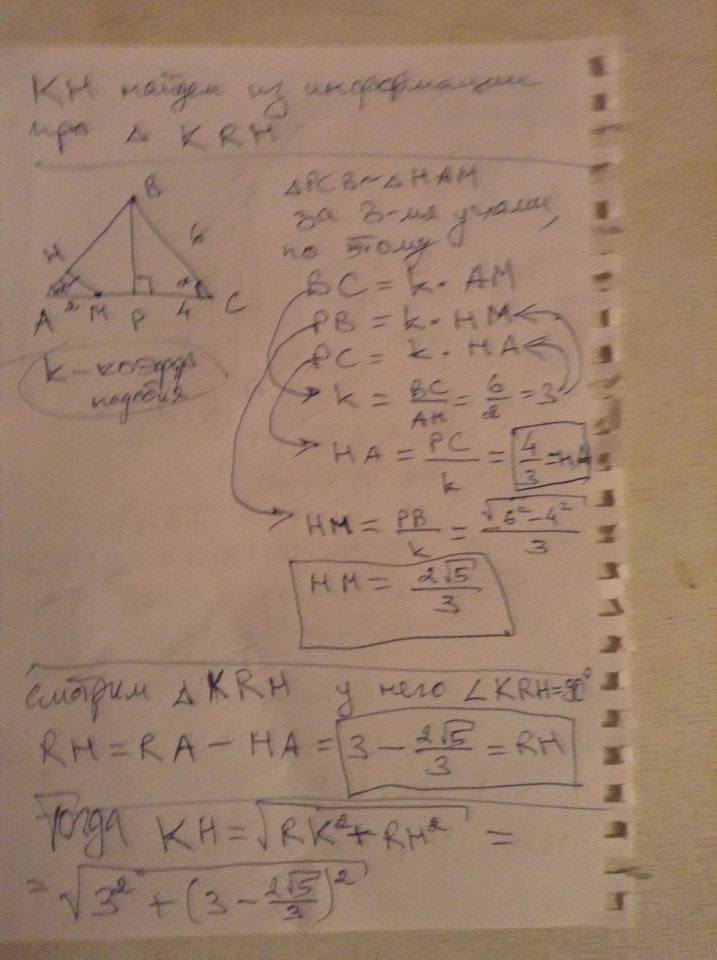 KH найдем из информации
про Δ KRH
B
H
6
α
α
A
2
M
P
4
C
k - коэфф
подобия
ΔPCB ~ ΔHAM
за 3-мя углами,
по этому
BC = k · AM
PB = k · HM
PC = k · HA
k = BC/AM = 6/2 = 3
HA = PC/k = 4/3 = HA
HM = PB/k = √(6² - 4²)/3
HM = 2√5/3
смотрим Δ KRH у него ∠KRH = 90°
RH = RA - HA = 3 - 2√5/3 = RH
Тогда KH = √(RK² + RH²) =
= √(3² + (3 - 2√5/3)²)